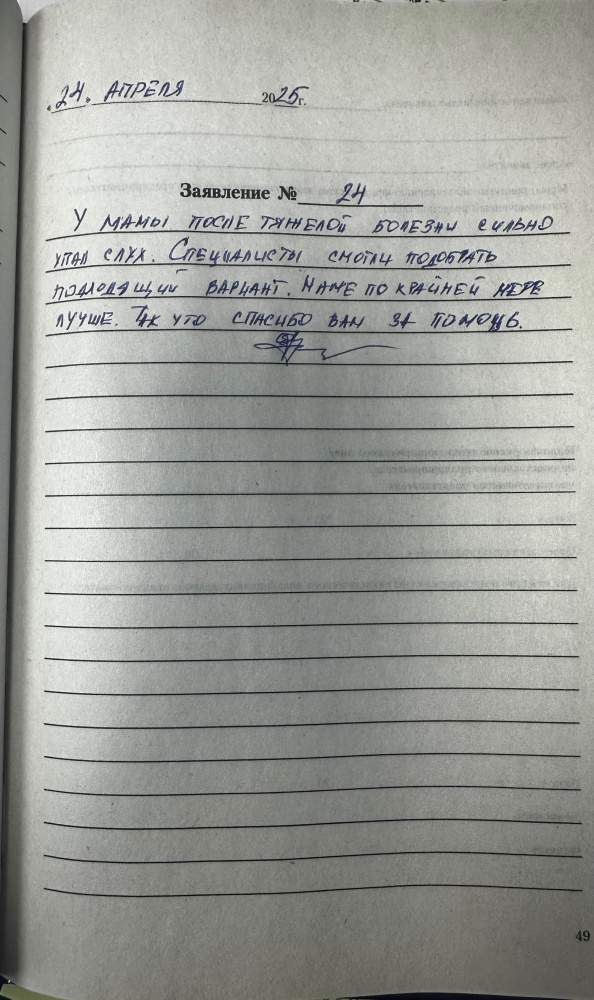 „24" АПРЕЛЯ 2025 г.
Заявление № 24
У МАМЫ ПОСЛЕ ТЯЖЕЛОЙ БОЛЕЗНИ СИЛЬНО
УПАЛ СЛУХ. СПЕЦИАЛИСТЫ СМОГЛИ ПОДОБРАТЬ
ПОДХОДЯЩИЙ ВАРИАНТ. МАМЕ ПО КРАЙНЕЙ МЕРЕ
ЛУЧШЕ. ТАК ЧТО СПАСИБО ВАМ ЗА ПОМОЩЬ.
49